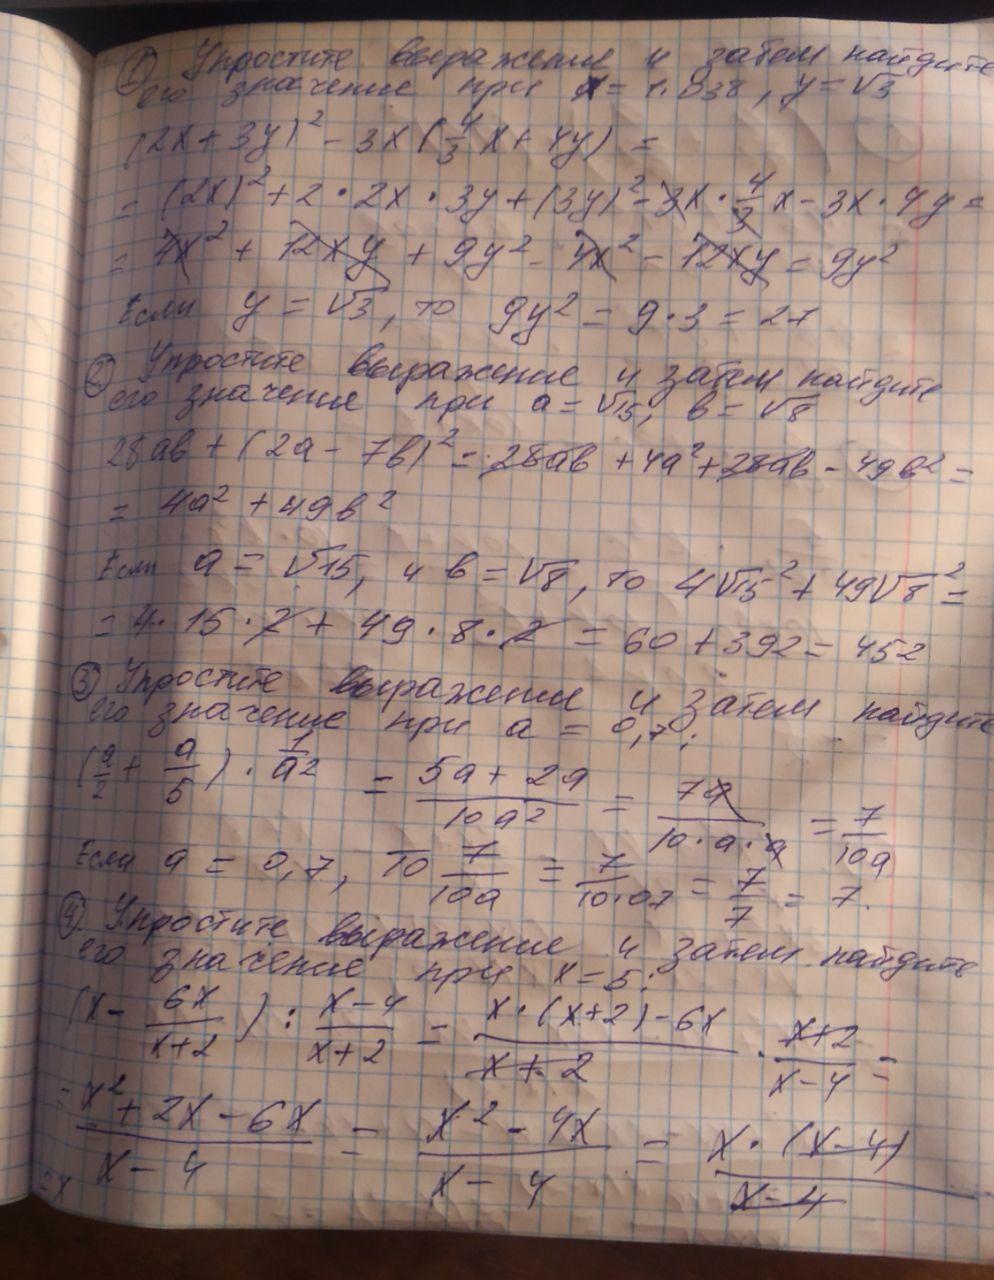 ① Упростите выражение и затем найдите
его значение при x = 1.038, y = √3
(2x + 3y)² - 3x (4/3 x + 4y) =
= (2x)² + 2 · 2x · 3y + (3y)² - 3x · 4/3 x - 3x · 4y =
= 4x² + 12xy + 9y² - 4x² - 12xy = 9y²
Если y = √3, то 9y² = 9 · 3 = 27
② Упростите выражение и затем найдите
его значение при a = √15, в = √8
28aв + (2a - 7в)² = 28aв + 4a² + 28aв - 49в² =
= 4a² + 49в²
Если a = √15, и в = √8, то 4√15² + 49√8² =
= 4 · 15 · 2 + 49 · 8 · 2 = 60 + 392 = 452
③ Упростите выражение и затем найдите
его значение при a = 0,7;
(a/2 + a/5) · 1/a² = (5a + 2a)/(10a²) = 7a/(10 · a · a) = 7/10a
Если a = 0,7, то 7/10a = 7/(10·07) = 7/7 = 7.
④ Упростите выражение и затем найдите
его значение при x = 5;
(x - 6x/(x+2)) : (x-4)/(x+2) = (x · (x+2) - 6x)/(x+2) · (x+2)/(x-4) =
= (x² + 2x - 6x)/(x - 4) = (x² - 4x)/(x - 4) = (x · (x-4))/(x-4)
= x